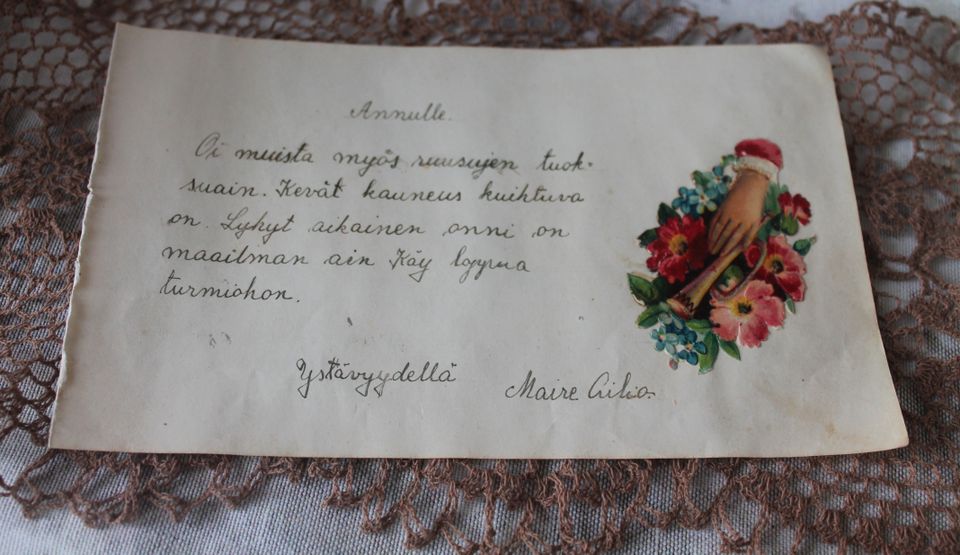 Annulle.
Oi muista myös ruusujen tuok-
suain. Kevät kauneus kuihtuva
on. Lyhyt aikainen onni on
maailman ain Käy
turmiohon.
Ystävyydellä
Maire